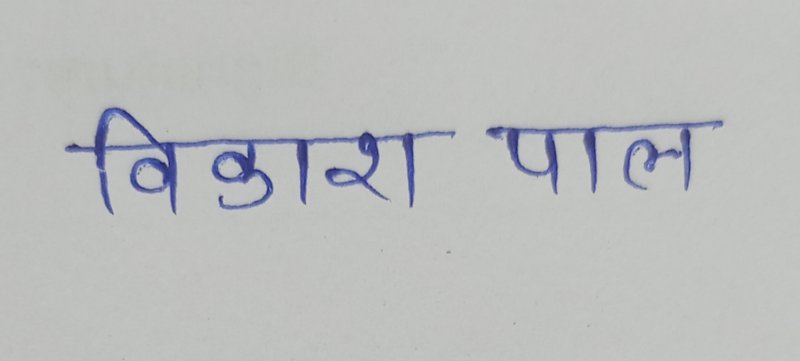 विकाश पाल